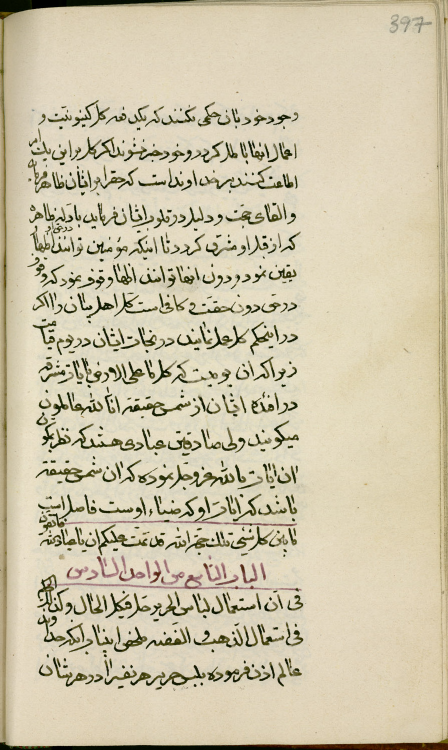 397
وجود خود بان حکمی نکنند که یکدفعه کل کینونیت و
اعمال انها باطل گردد و خود خبر نشوند اگر کل بر این یک امر
اطاعت کنند بر خداوند است که حق را بر ایشان ظاهر فرماید
و القای حجت و دلیل در قلوب ایشان فرماید بادله ظاهره
که از قبل او مشرق گردد تا اینکه مؤمنین توانند در حق او اظهار
یقین نمود و دون انها توانند اظهار وقوف نمود که وقوف
در حق دون حقیت او کافی است کل اهل بیان را اگر
در اینحکم کل عمل نمایند در نجات ایشان در یوم قیامت
زیرا که ان یومیست که کل ما علی الارض بایات مشرقه
در افئده ایشان از شمس حقیقة انا لله عالمون
میگویند ولی صادقین عبادی هستند که نظر بمکون
ان ایات بالله عز و جل نموده که ان شمس حقیقة
باشد که ایات او که ضیاء اوست فاصل است
مابین کل شیئ تلک حجة الله قد تمت علیکم ان یا عباد الله فاتقون
الباب التاسع من الواحد السادس
فی ان استعمال لباس الحریر حل فی کل الحال و کذلک الحکم
فی استعمال الذهب و الفضه ملخص این باب انکه خداوند
عالم اذن فرموده بلبس حریر هر نفسی را در هر شأن